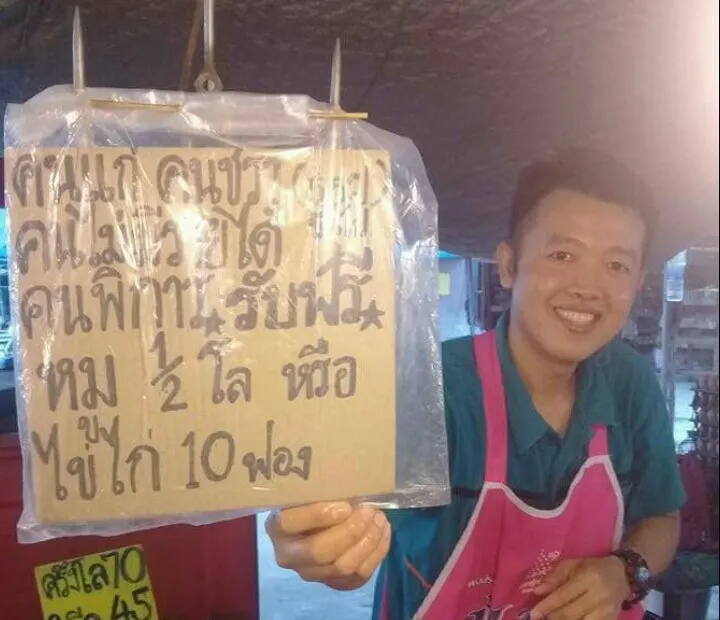 คนแก่ คนชรา
คนไม่มีรายได้
คนพิการ รับฟรี
หมู 1/2 โล หรือ
ไข่ไก่ 10 ฟอง
ครึ่งโล 70
45